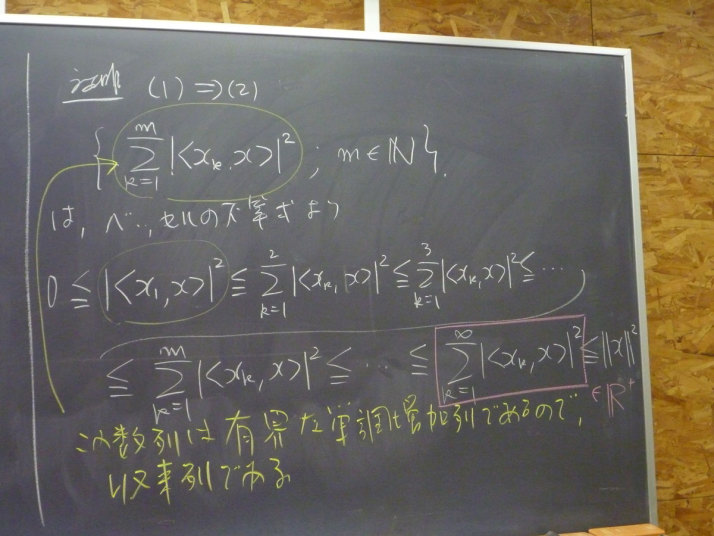 (1) ⇒ (2)
{ ∑_{k=1}^{m} |<x_k, x>|^2 ; m ∈ ℕ }.
は, ベッセルの不等式より
0 ≦ |<x_1, x>|^2 ≦ ∑_{k=1}^{2} |<x_k, x>|^2 ≦ ∑_{k=1}^{3} |<x_k, x>|^2 ≦ ⋯
≦ ∑_{k=1}^{m} |<x_k, x>|^2 ≦ ⋯ ≦ ∑_{k=1}^{∞} |<x_k, x>|^2 ≦ ||x||^2
∈ ℝ^+
この数列は有界な単調増加列であるので,
収束列である